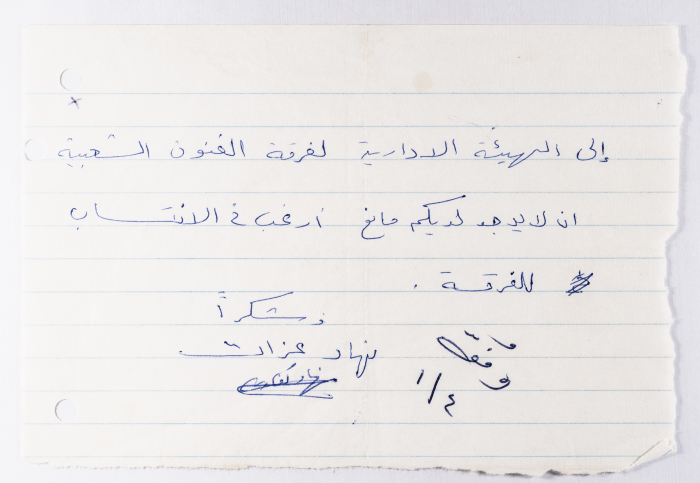 إلى الهيئة الادارية لفرقة الفنون الشعبية
ان لا يوجد لديكم مانع أرغب في الانتساب
للفرقة .
وشكراً
نهاد عزات
٤/١